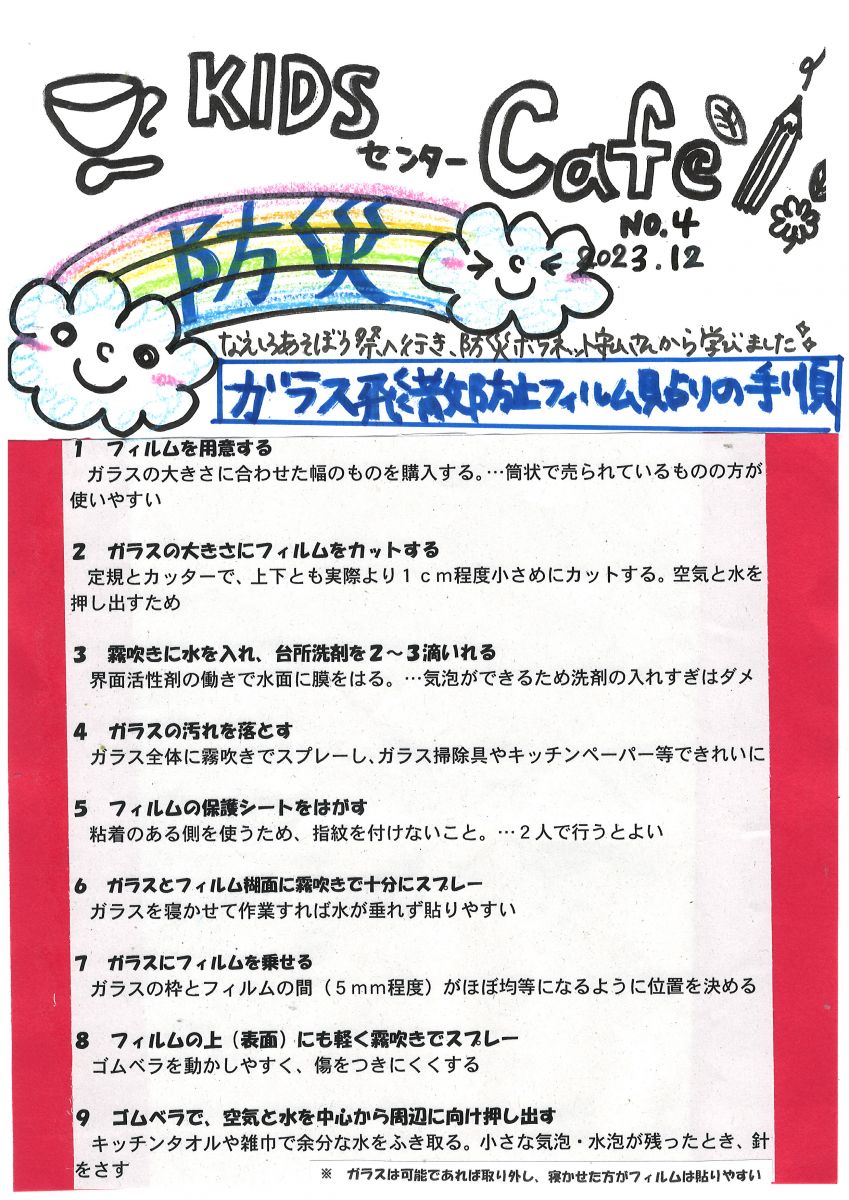 KIDS
センター Cafe
NO.4
2023.12
防災
なえしろあそぼう祭へ行き、防災ボラネット守山さんから学びました
ガラス飛散防止フィルム貼りの手順
1 フィルムを用意する
ガラスの大きさに合わせた幅のものを購入する。…筒状で売られているものの方が
使いやすい
2 ガラスの大きさにフィルムをカットする
定規とカッターで、上下とも実際より１ｃｍ程度小さめにカットする。空気と水を
押し出すため
3 霧吹きに水を入れ、台所洗剤を２～３滴いれる
界面活性剤の働きで水面に膜をはる。…気泡ができるため洗剤の入れすぎはダメ
4 ガラスの汚れを落とす
ガラス全体に霧吹きでスプレーし、ガラス掃除具やキッチンペーパー等できれいに
5 フィルムの保護シートをはがす
粘着のある側を使うため、指紋を付けないこと。…２人で行うとよい
6 ガラスとフィルム糊面に霧吹きで十分にスプレー
ガラスを寝かせて作業すれば水が垂れず貼りやすい
7 ガラスにフィルムを乗せる
ガラスの枠とフィルムの間（５ｍｍ程度）がほぼ均等になるように位置を決める
8 フィルムの上（表面）にも軽く霧吹きでスプレー
ゴムベラを動かしやすく、傷をつきにくくする
9 ゴムベラで、空気と水を中心から周辺に向け押し出す
キッチンタオルや雑巾で余分な水をふき取る。小さな気泡・水泡が残ったとき、針
をさす
※ ガラスは可能であれば取り外し、寝かせた方がフィルムは貼りやすい